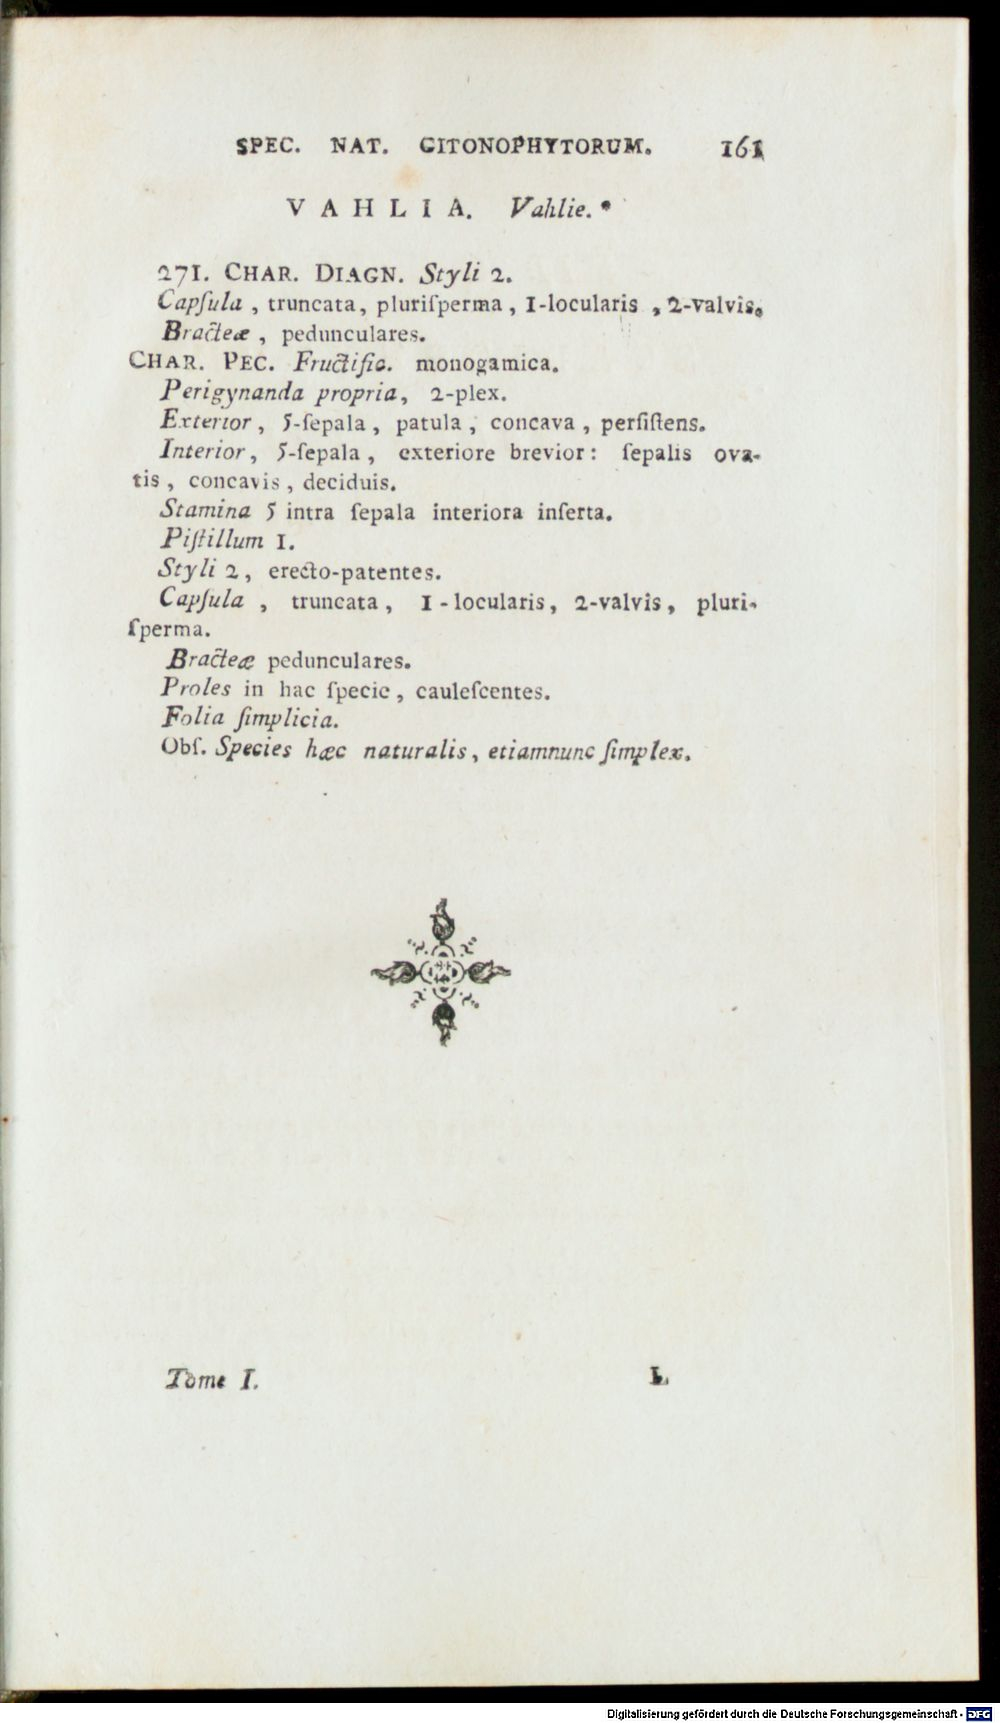 SPEC. NAT. GITONOPHYTORUM. 161
VAHLIA. Vahlie. *
271. CHAR. DIAGN. Styli 2.
Capſula , truncata, pluriſperma , 1-locularis , 2-valvis.
Bracteæ , pedunculares.
CHAR. PEC. Fructific. monogamica.
Perigynanda propria, 2-plex.
Exterior , 5-ſepala , patula , concava , perſiſtens.
Interior , 5-ſepala , exteriore brevior : ſepalis ova-
tis , concavis , deciduis.
Stamina 5 intra ſepala interiora inſerta.
Piſtillum 1.
Styli 2, erecto-patentes.
Capſula , truncata , 1-locularis, 2-valvis, pluri-
ſperma.
Bracteæ pedunculares.
Proles in hac ſpecie , cauleſcentes.
Folia ſimplicia.
Obſ. Species hæc naturalis, etiamnunc ſimplex.
Tome I. L
Digitalisierung gefördert durch die Deutsche Forschungsgemeinschaft - DFG